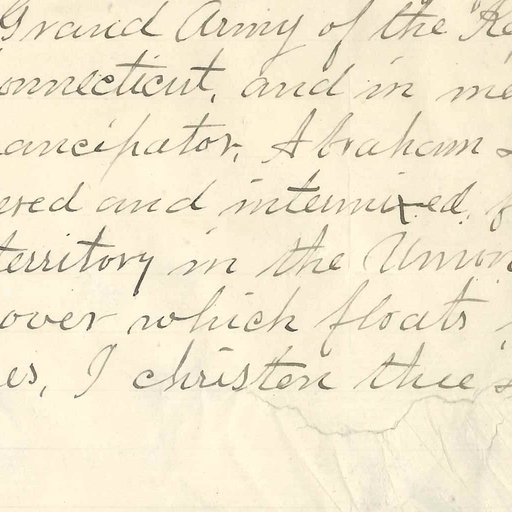 Grand Army of the Re
onnecticut, and in me
ancipator, Abraham L
ered and intermixed, f
territory in the Union
over which floats
es, I christen thee